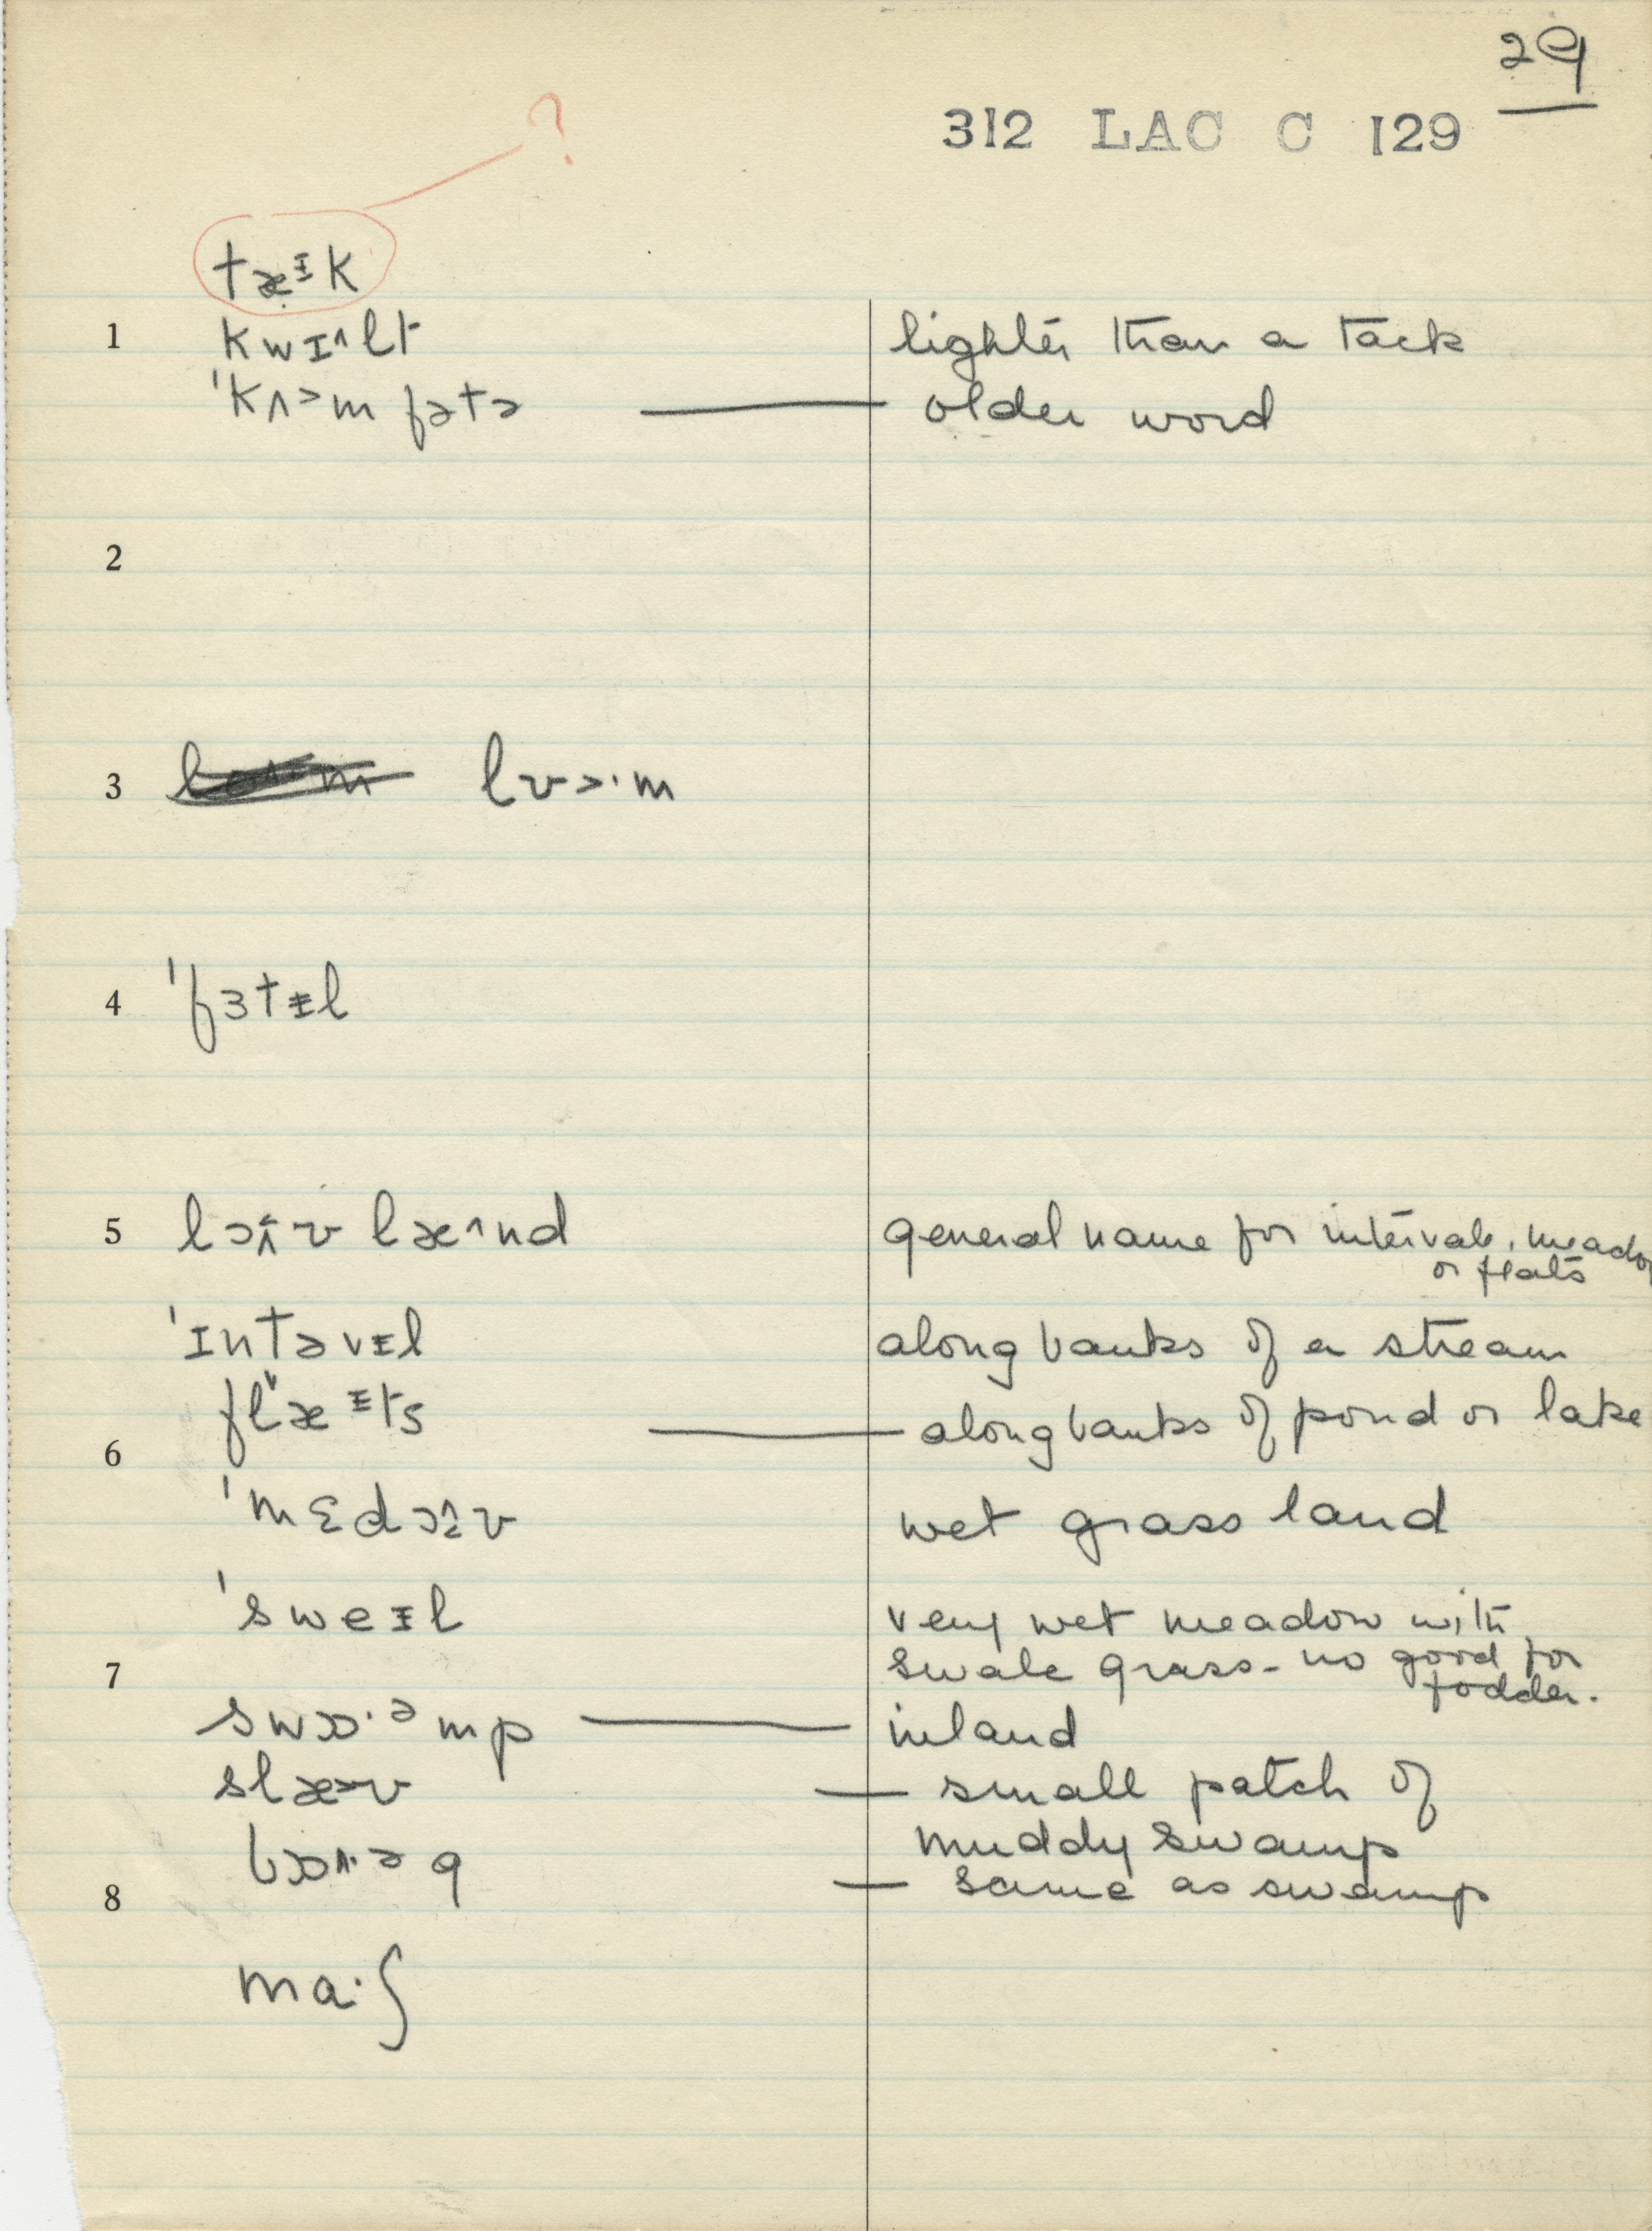 29
312 LAC C 129
?
tæᵻk
1 kwɪ^lt lighter than a tack
'kʌ>m fətə — older word
2
3 lʊ>·m
4 'fɜtᵻl
5 læ^nd general name for interval, meadow
or flats
'ɪntəvᵻl along banks of a stream
flæᵻts — along banks of pond or lake
6
'mɛd wet grass land
'sweᵻl very wet meadow with
swale grass - no good for
7 fodder.
swɒ·ᵊmp — inland
slæ>ʊ — small patch of
muddy swamp
8 — same as swamp
ma·ʃ